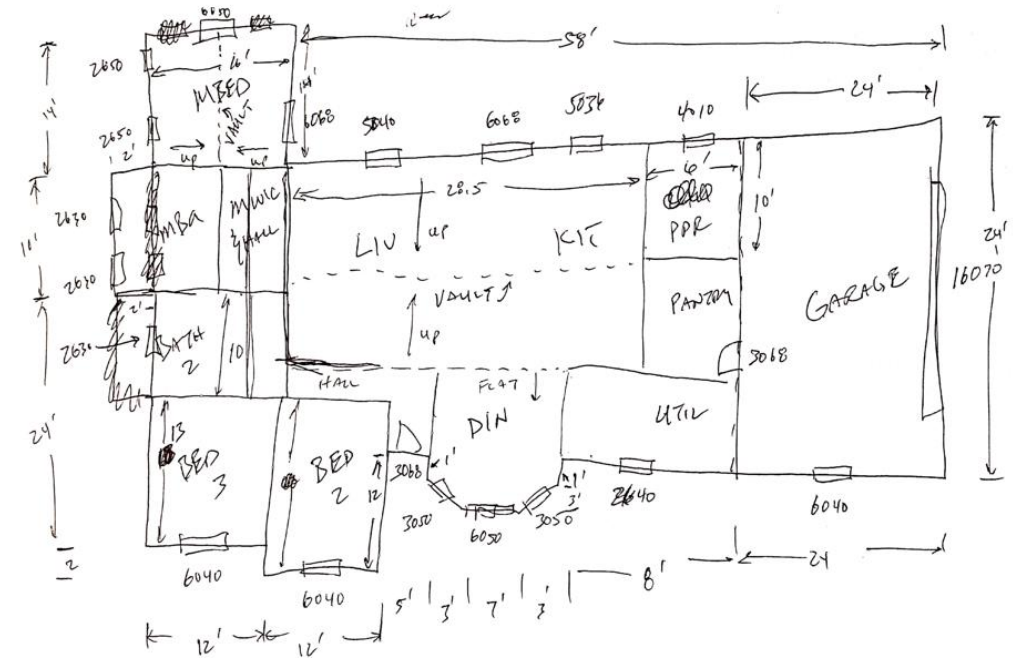 6050
58'
2650
16'
MBED
14'
14'
24'
VAULT
6068
5040
6068
5036
4010
2650
2'
up
up
6'
28.5
10'
24'
2630
MBa
MWIC
& HALL
LIV
up
KIT
PPR
16070
11'
2630
VAULT
PANTRY
GARAGE
2'
2630
BATH
2
10
up
3068
HALL
FLAT
DIN
UTIL
24'
13
BED
3
BED
2
12
3068
1'
1'
3'
3050
6050
3050
2640
6040
2
6040
6040
24
5'
3'
7'
3'
8'
12'
12'